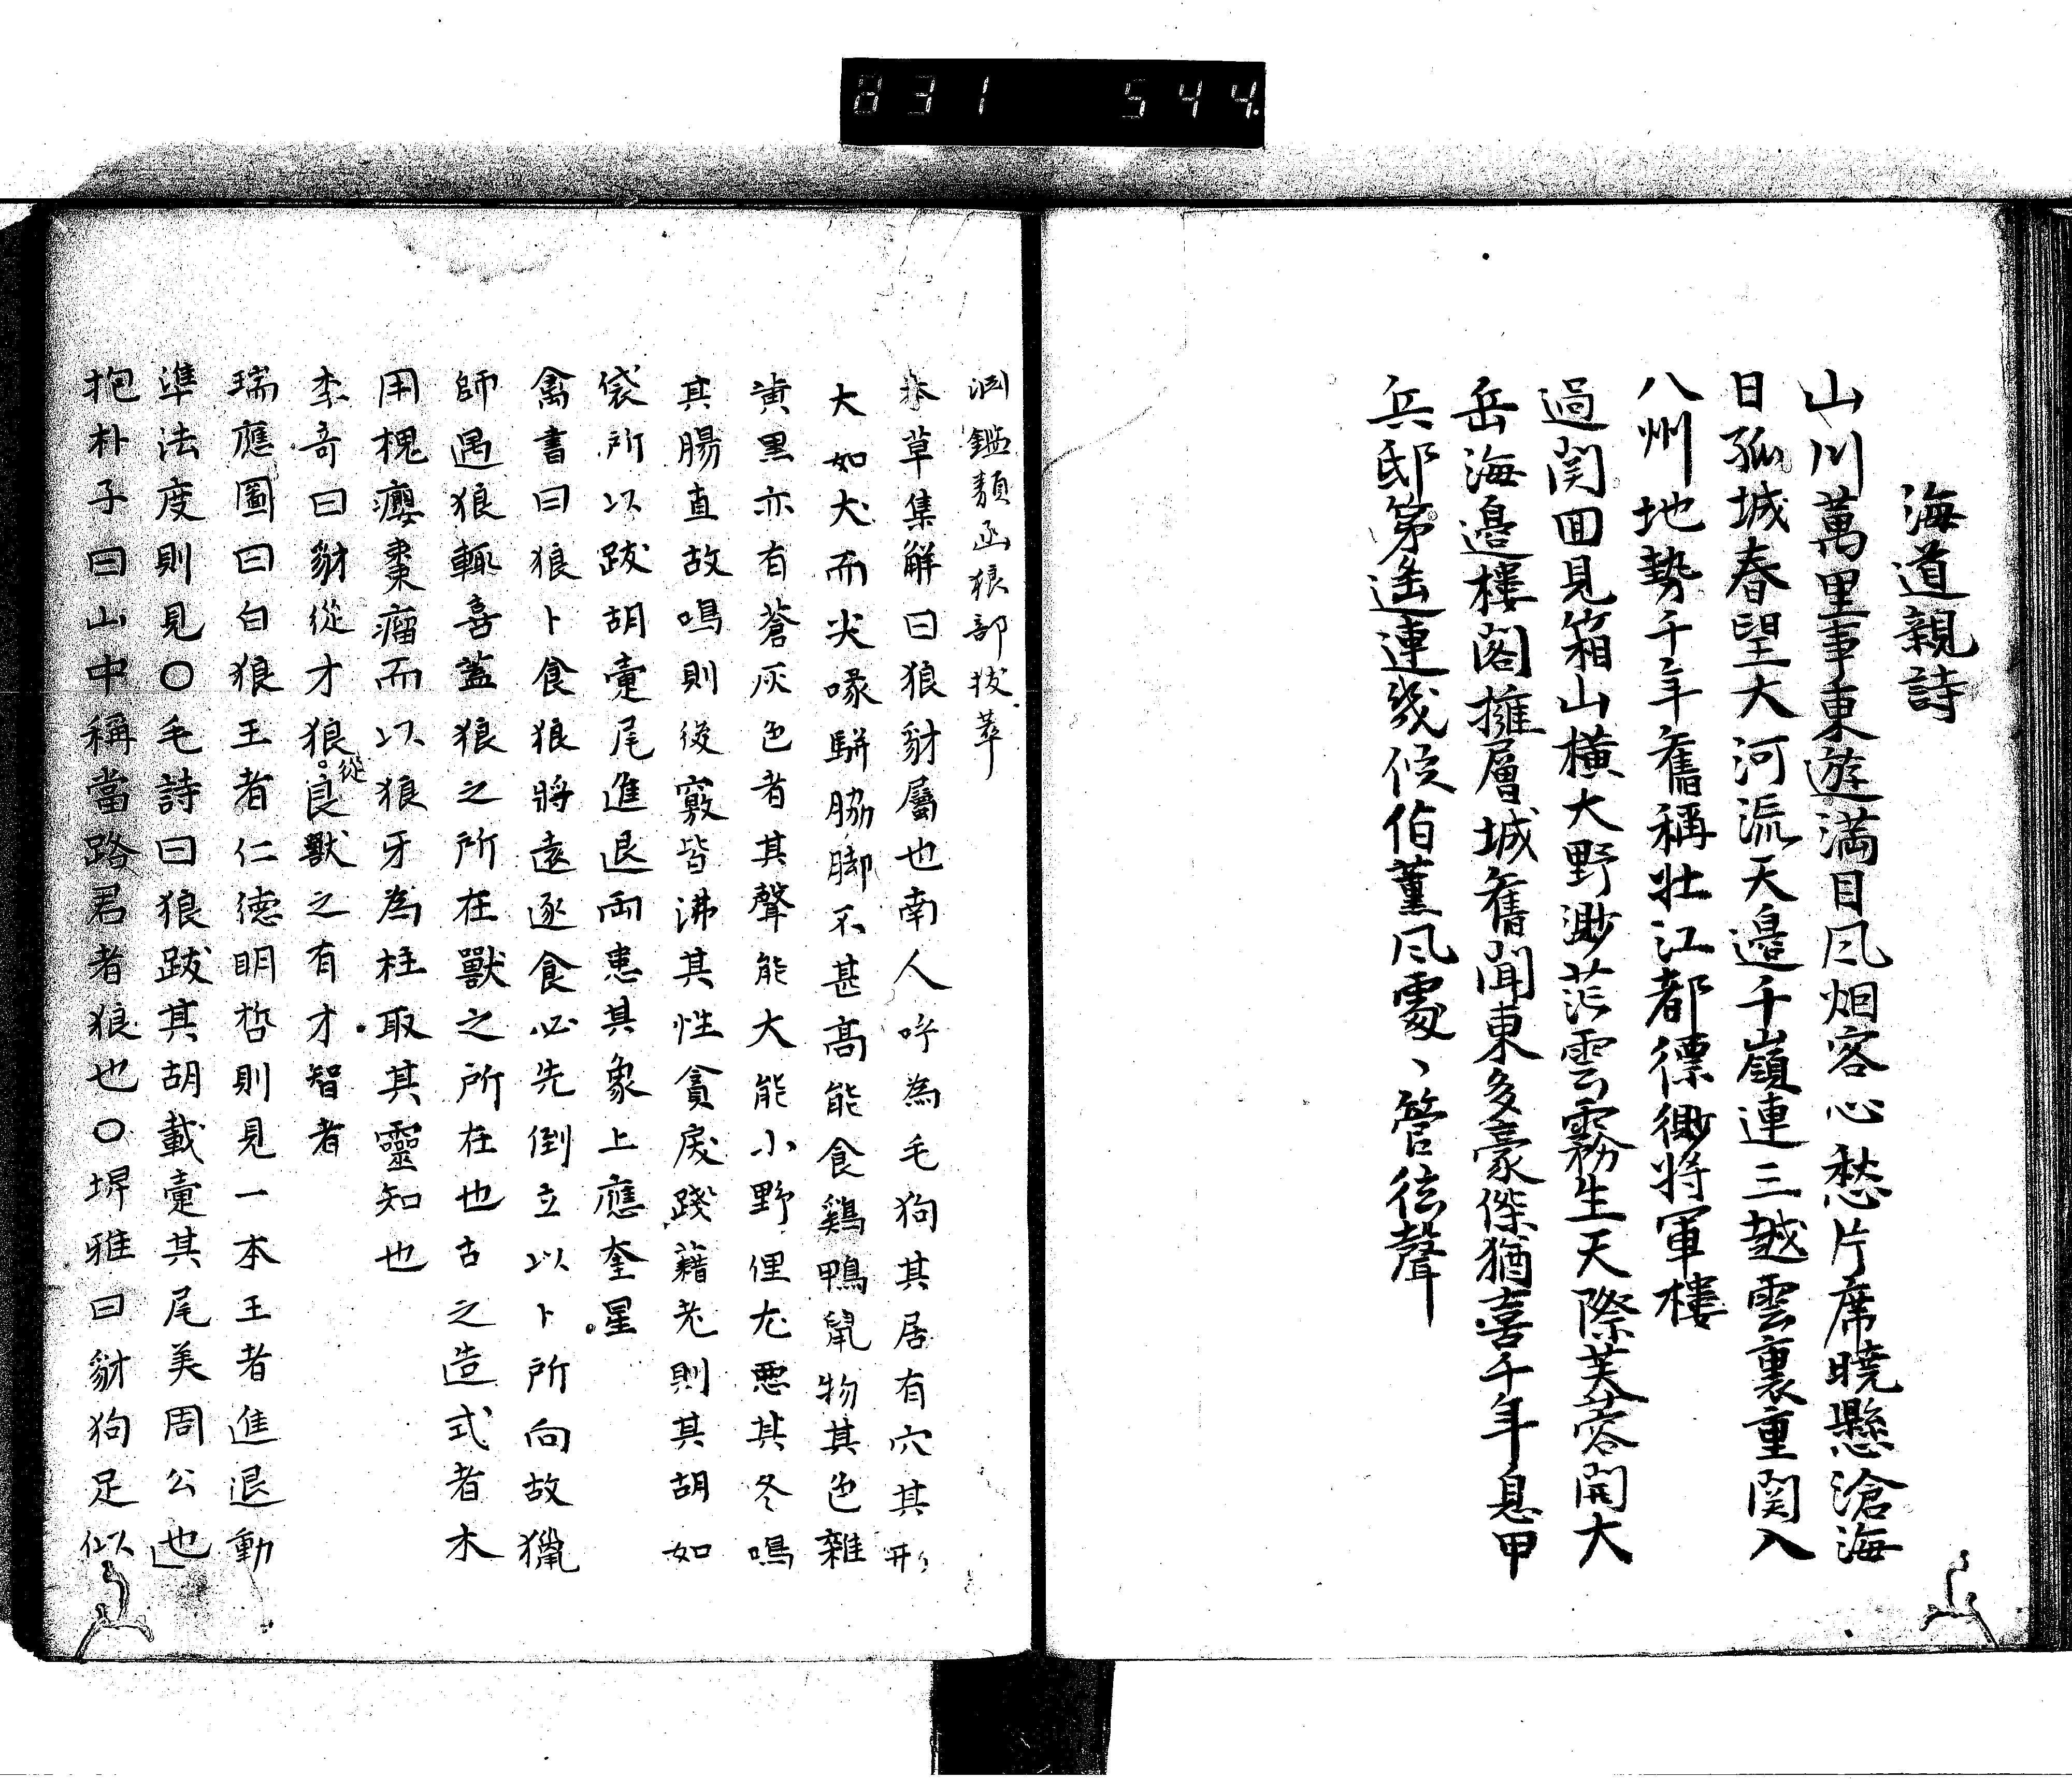 831 544
海道親詩
山川萬里事東遊満目风烟客心愁片席曉懸滄海
日孤城春望大河流天邉千嶺連三越雲裏重関入
八州地勢千年舊稱壮江都標緲将軍樓
過関囬見箱山橫大野渺茫雲霧生天際芙蓉開大
岳海邉樓閣擁層城舊聞東多豪傑猶喜千年息甲
兵邸第遥連幾候伯薫风處〻管弦聲
淵鑑類函狼部拔萃
本草集觧曰狼豺屬也南人呼為毛狗其居有穴其形
大如犬而尖喙駢脇脚不甚高能食鷄鴨鼠物其色雜
黄黒亦有蒼灰色者其聲能大能小野俚尤悪其冬鳴
其腸直故鳴則後竅皆沸其性貪戾踐藉老則其胡如
袋所以跋胡疐尾進退両患其象上應奎星
禽書曰狼卜食狼將遠逐食必先倒立以卜所向故獵
師遇狼輒喜蓋狼之所在獸之所在也古之造式者木
用槐癭棗瘤而以狼牙為柱取其靈知也
李奇曰豺從才狼從良獸之有才智者
瑞應圖曰白狼王者仁德明哲則見一本王者進退動
準法度則見〇毛詩曰狼跋其胡載疐其尾美周公也
抱朴子曰山中稱當路君者狼也〇埤雅曰豺狗足似